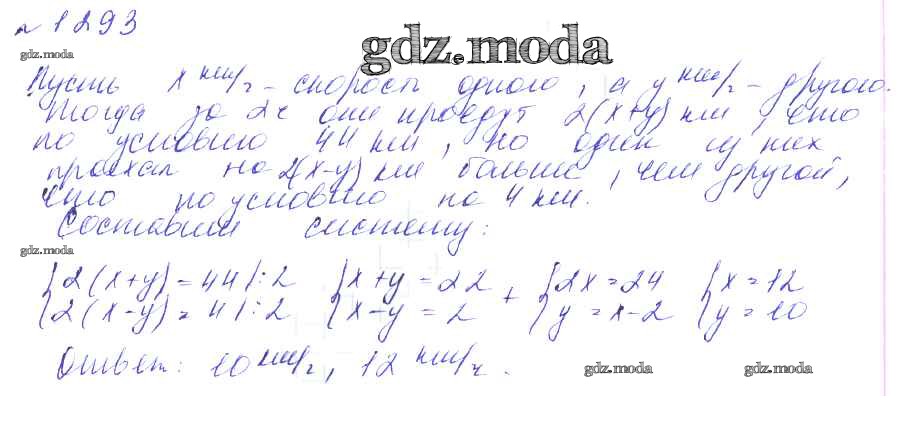 № 1293
gdz.moda
gdz.moda
Пусть x км/ч – скорость одного, а y км/ч – другого.
Тогда за 2ч они проедут 2(x+y) км, что
по условию 44 км, но один из них
проехал на 2(x-y) км больше, чем другой,
что по условию на 4 км.
Составим систему:
gdz.moda
{2(x+y)=44 |:2 {x+y=22 + {2x=24 {x=12
{2(x-y)=4 |:2 {x-y=2 {y=x-2 {y=10
Ответ: 10 км/ч, 12 км/ч.
gdz.moda gdz.moda